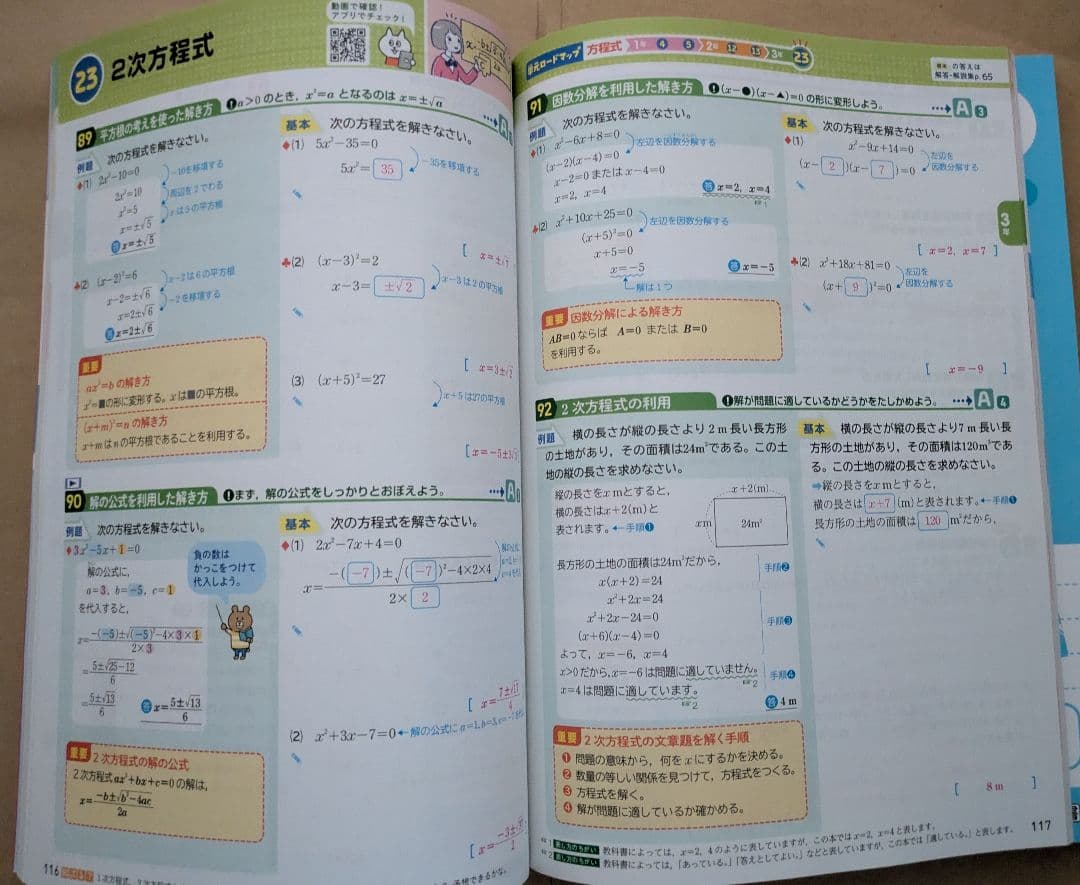 23 2次方程式
動画で確認！
アプリでチェック！
89 平方根の考えを使った解き方
❶a>0のとき，x²=aとなるのはx=±√a
例題 次の方程式を解きなさい。
(1) 2x²-10=0
-10を移項する
2x²=10
両辺を2でわる
x²=5
xは5の平方根
x=±√5
答 x=±√5
(2) (x-2)²=6
x-2は6の平方根
x-2=±√6
-2を移項する
x=2±√6
答 x=2±√6
重要
ax²=bの解き方
x²=■の形に変形する。xは■の平方根。
(x+m)²=nの解き方
x+mはnの平方根であることを利用する。
基本 次の方程式を解きなさい。
(1) 5x²-35=0
-35を移項する
5x²=35
[ x=±√7
(2) (x-3)²=2
x-3=±√2
x-3は2の平方根
[ x=3±√2
(3) (x+5)²=27
x+5は27の平方根
[x=-5±3√
90 解の公式を利用した解き方
❶まず，解の公式をしっかりとおぼえよう。
A
例題 次の方程式を解きなさい。
3x²-5x+1=0
解の公式に，
a=3，b=-5，c=1
を代入すると，
負の数は
かっこをつけて
代入しよう。
x=-(-5)±√(-5)²-4×3×1
2×3
=5±√25-12
6
=5±√13
6
答 x=5±√13
6
重要 2次方程式の解の公式
2次方程式ax²+bx+c=0の解は，
x=-b±√b²-4ac
2a
基本 次の方程式を解きなさい。
(1) 2x²-7x+4=0
x=-(-7)±√(-7)²-4×2×4
2×2
[ x=7±√17
4
(2) x²+3x-7=0←解の公式にa=1，b=3，c=-7
[ x=-3±√
2
116
単元ロードマップ 方程式 1年 4 5 2年 12 13 3年 23
基本の答えは
解答・解説集p.65
91 因数分解を利用した解き方
❶(x-●)(x-▲)=0の形に変形しよう。
A3
例題 次の方程式を解きなさい。
(1) x²-6x+8=0
左辺を因数分解する
(x-2)(x-4)=0
x-2=0またはx-4=0
x=2，x=4
答 x=2，x=4
(2) x²+10x+25=0
左辺を因数分解する
(x+5)²=0
x+5=0
x=-5
答 x=-5
解は1つ
重要 因数分解による解き方
AB=0ならば A=0 または B=0
を利用する。
基本 次の方程式を解きなさい。
(1) x²-9x+14=0
左辺を
因数分解する
(x-2)(x-7)=0
[ x=2，x=7 ]
(2) x²+18x+81=0
左辺を
因数分解する
(x+9)²=0
[ x=-9 ]
3年
92 2次方程式の利用
❶解が問題に適しているかどうかをたしかめよう。
A4
例題 横の長さが縦の長さより2m長い長方形
の土地があり，その面積は24m²である。この土
地の縦の長さを求めなさい。
縦の長さをxmとすると，
横の長さはx+2(m)と
表されます。←手順❶
x+2(m)
xm
24m²
長方形の土地の面積は24m²だから，
手順❷
x(x+2)=24
x²+2x=24
x²+2x-24=0
手順❸
(x+6)(x-4)=0
よって，x=-6，x=4
x>0だから，x=-6は問題に適していません。
手順❹
x=4は問題に適しています。
答 4m
重要 2次方程式の文章題を解く手順
❶ 問題の意味から，何をxにするかを決める。
❷ 数量の等しい関係を見つけて，方程式をつくる。
❸ 方程式を解く。
❹ 解が問題に適しているか確かめる。
基本 横の長さが縦の長さより7m長い長
方形の土地があり，その面積は120m²であ
る。この土地の縦の長さを求めなさい。
⇒縦の長さをxmとすると，
横の長さはx+7(m)と表されます。←手順❶
長方形の土地の面積は120m²だから，
[ 8m ]
1 表し方のちがい 教科書によっては，x=2，4のように表していますが，この本ではx=2，x=4と表します。
2 表し方のちがい 教科書によっては，「あっている」，「答えとしてよい」などと表していますが，この本では「適している。」と表します。
117